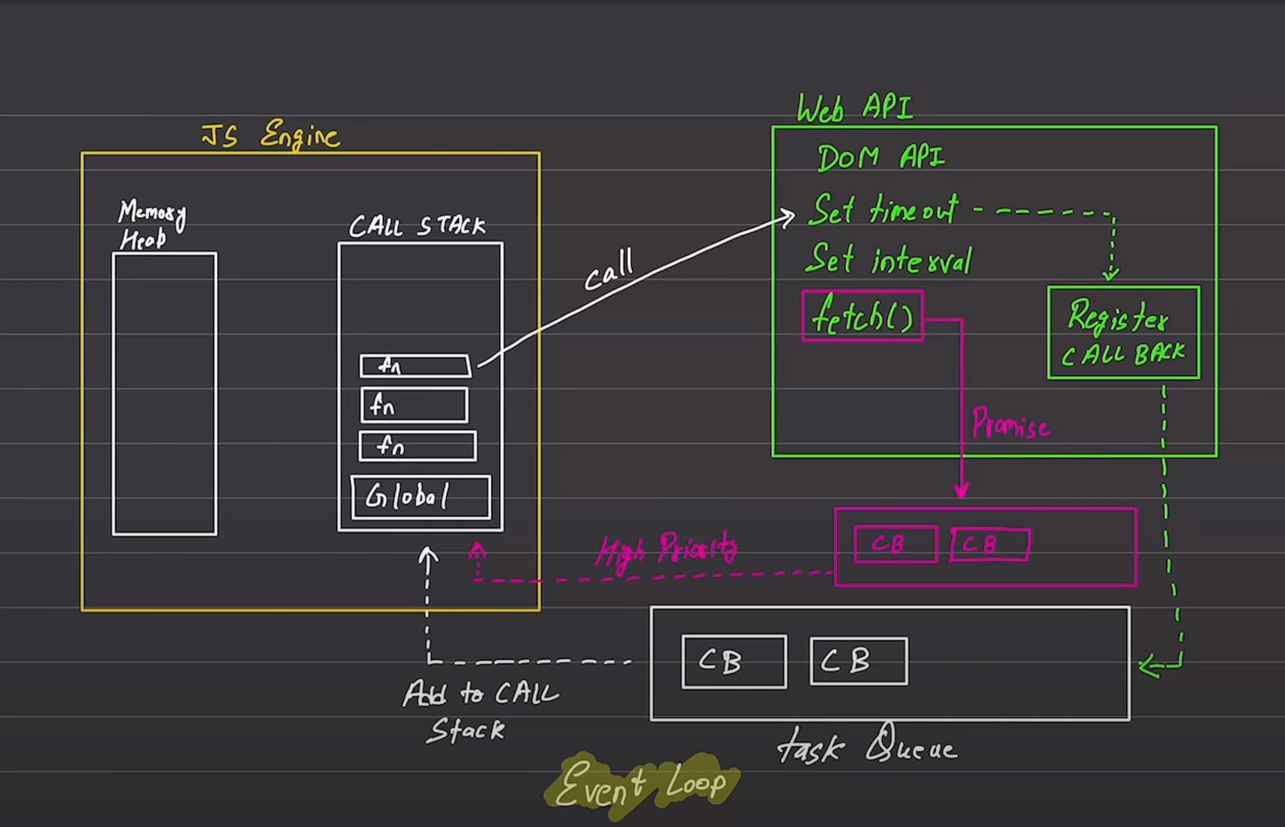 JS Engine
Memory
Heab
CALL STACK
fn
fn
fn
Global
call
Web API
DOM API
Set timeout
Set interval
fetch()
Register
CALL BACK
Promise
High Priority
CB CB
CB CB
Add to CALL
Stack
task Queue
Event Loop